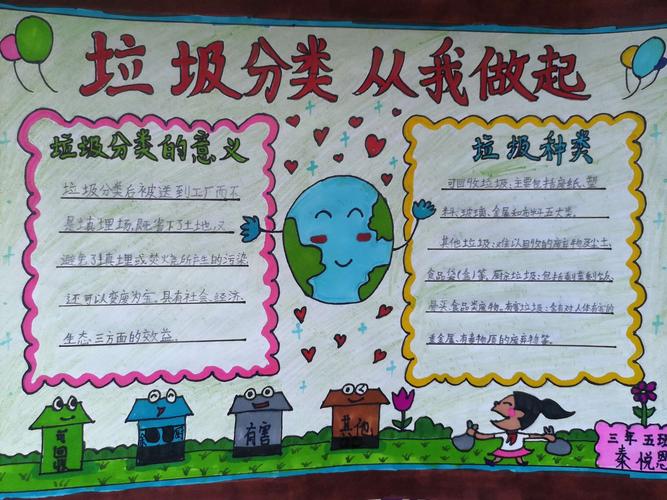 垃圾分类 从我做起
垃圾分类的意义
垃圾分类后被送到工厂而不
是填埋场,既省下了土地,又
避免了填埋或焚烧所产生的污染
还可以变废为宝。具有社会、经济、
生态三方面的效益。
垃圾种类
可回收垃圾:主要包括废纸、塑
料、玻璃、金属和布料五大类。
其他垃圾:难以回收的废弃物及尘土、
食品袋(盒)等。厨余垃圾:包括剩菜剩饭、
骨头、食品类废物。有害垃圾:含有对人体有害的
重金属、有毒物质的废弃物等。
可回收
厨
有害
其他
三年五班
秦悦恩